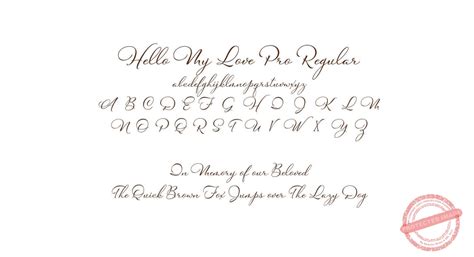 Hello My Love Pro Regular
abcdefghijklmnopqrstuvwxyz
A B C D E F G H I J K L M
N O P Q R S T U V W X Y Z
In Memory of our Beloved
The Quick Brown Fox Jumps over The Lazy Dog